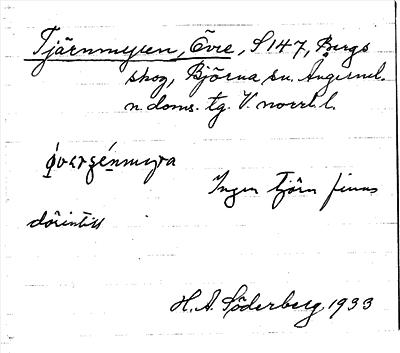 Tjärnmyren, Övre, S147, Bergs
skog, Björna sn. Ångerml.
n. doms. tg. V. norrl. l.
Ingen tjärn finns
därintill
H. A. Söderberg 1933